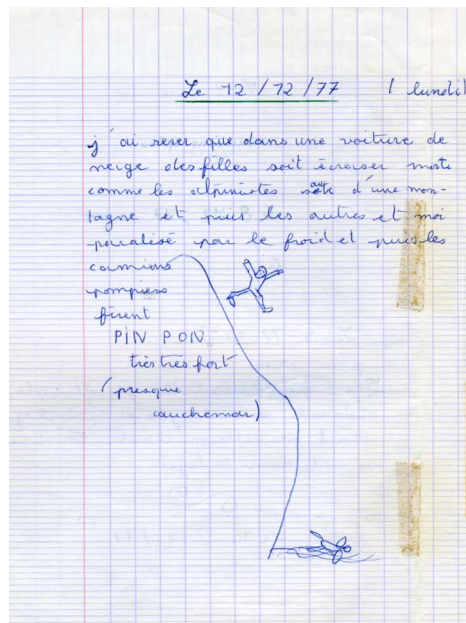 Le 12/12/77 (lundi)
j'ai rever que dans une voiture de
neige des filles soit écraiser morte
comme les alpinistes saute d'une mon-
tagne et puis les autres et moi
paralisé par le froid et puis les
camions
pompiers
firent
PIN PON
très très fort
(presque
cauchemar)